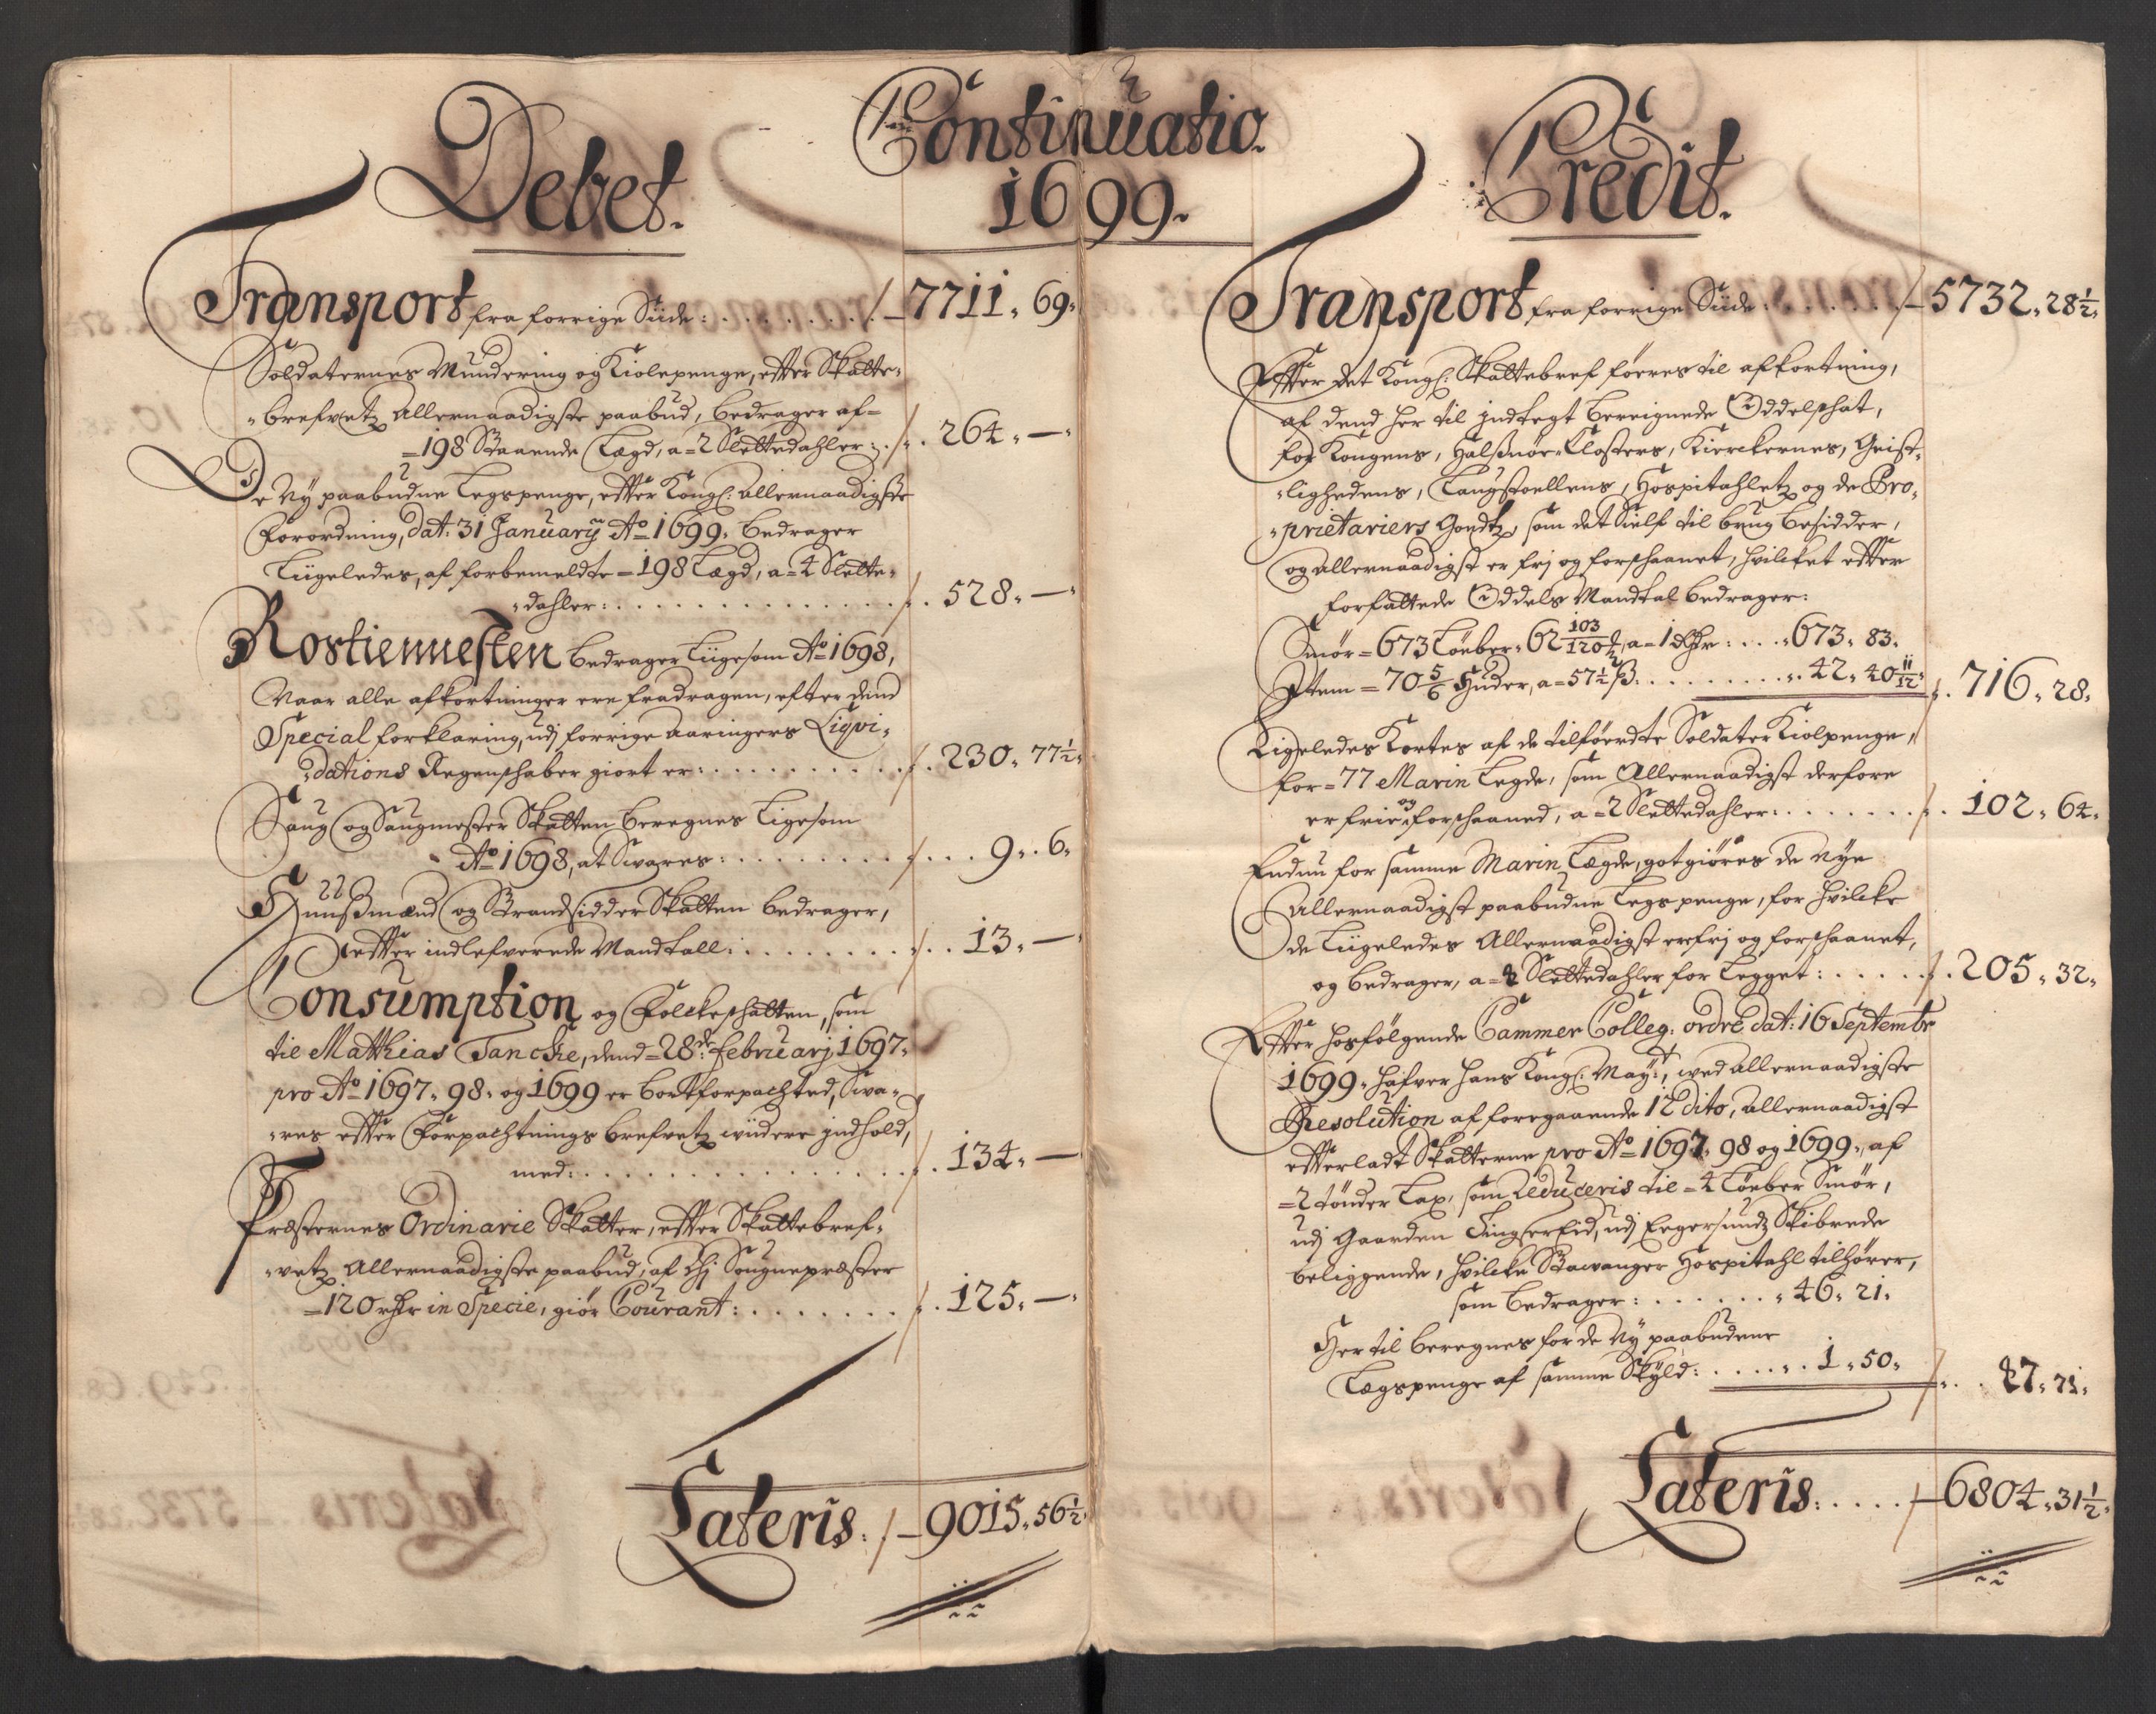 Continuatio.
1699.
Debet.
Transport fra forrige Siide: 7711. 69.
Soldaternes Mundering og Kiolepenge, effter Skatte-
brefvetz Allernaadigste paabud, bedrager af-
198 Staaende Lægd, a 2 Slettedahler: 264. —
De Ny paabudne Legspenge, effter Kongl: allernaadigste
Forordning, dat: 31 Januarij Ao 1699. bedrager
Liigeledes, af forbemeldte 198 Lægd, a 4 Slette-
dahler: 528. —
Rostiennesten bedrager Liigesom Ao 1698,
Naar alle afkortninger ere fradragen, efter dend
Special forklaring, udj forrige aaringers Liqvi-
dations Regenschaber giort er: 230. 77½.
Saug og Saugmester Skatten beregnes Ligesom
Ao 1698, at Svares: 9. 6.
Huusmænd og Strandsidder Skatten bedrager,
effter indlefverede Mandtall: 13. —
Consumption og Folckeschatten, som
til Matthias Tancke, dend 28de februarj 1697.
pro Ao 1697. 98. og 1699 er bortforpachted, Sva-
res effter Forpachtnings brefvetz viidere jndhold,
med: 134. —
Præsternes Ordinarie Skatter, effter Skattebref-
vetz Allernaadigste paabud, af Sougnepræster
120 rdr in Specie, giør Courant: 125. —
Lateris: 9015. 56½.
Credit.
Transport fra forrige Siide: 5732. 28½.
Effter det Kongl: Skattebref føeres til afkortning,
af dend her til jndtegt bereignede Oddelschat,
for Kongens, Halsnøe Closters, Kierckernes, Geist-
lighedens, Laugstoellens, Hospitahletz og de Pro-
prietariers Goedtz, som det Sielf til brug besidder,
og allernaadigst er frj og forschaanet, hvilcket effter
forfattede Oddels Mandtal bedrager:
Smør 673 Løeber 62 103/120 , a 1 Rdr: 673. 83.
Item 70 5/6 Huder, a 57½ ß: 42. 40 11/12. 716. 28.
Ligeledes Kortes af de tilføerdte Soldater Kiolpenge,
for 77 Marin Legde, som Allernaadigst derfore
er frie og forschaaned, a 2 Slettedahler: 102. 64.
Endnu for samme Marin Lægde, gotgiøres de Nye
Allernaadigst paabudne Legspenge, for hvilcke
de Liigeledes Allernaadigst ere frj og forschaanet,
og bedrager, a 4 Slettedahler for Legget: 205. 32.
Effter hosfølgende Cammer Colleg: ordre dat: 16 Septembr
1699. hafver Hans Kongl: Mayt:, ved allernaadigste
Resolution af foregaaende 12 dito, allernaadigst
efterladt Skatterne pro Ao 1697. 98 og 1699, af
2 tønder Lax, som reduceris til 4 Løeber Smør,
udj Gaarden LingserEid, udj Eegersundz Skibrede
beliggende, hvilcke Stavanger Hospitahl tilhører,
som bedrager: 46. 21.
Her til beregnes for de Ny paabudene
Lægspenge af samme Skyld: 1. 50. 47. 71.
Lateris: 6804. 31½.